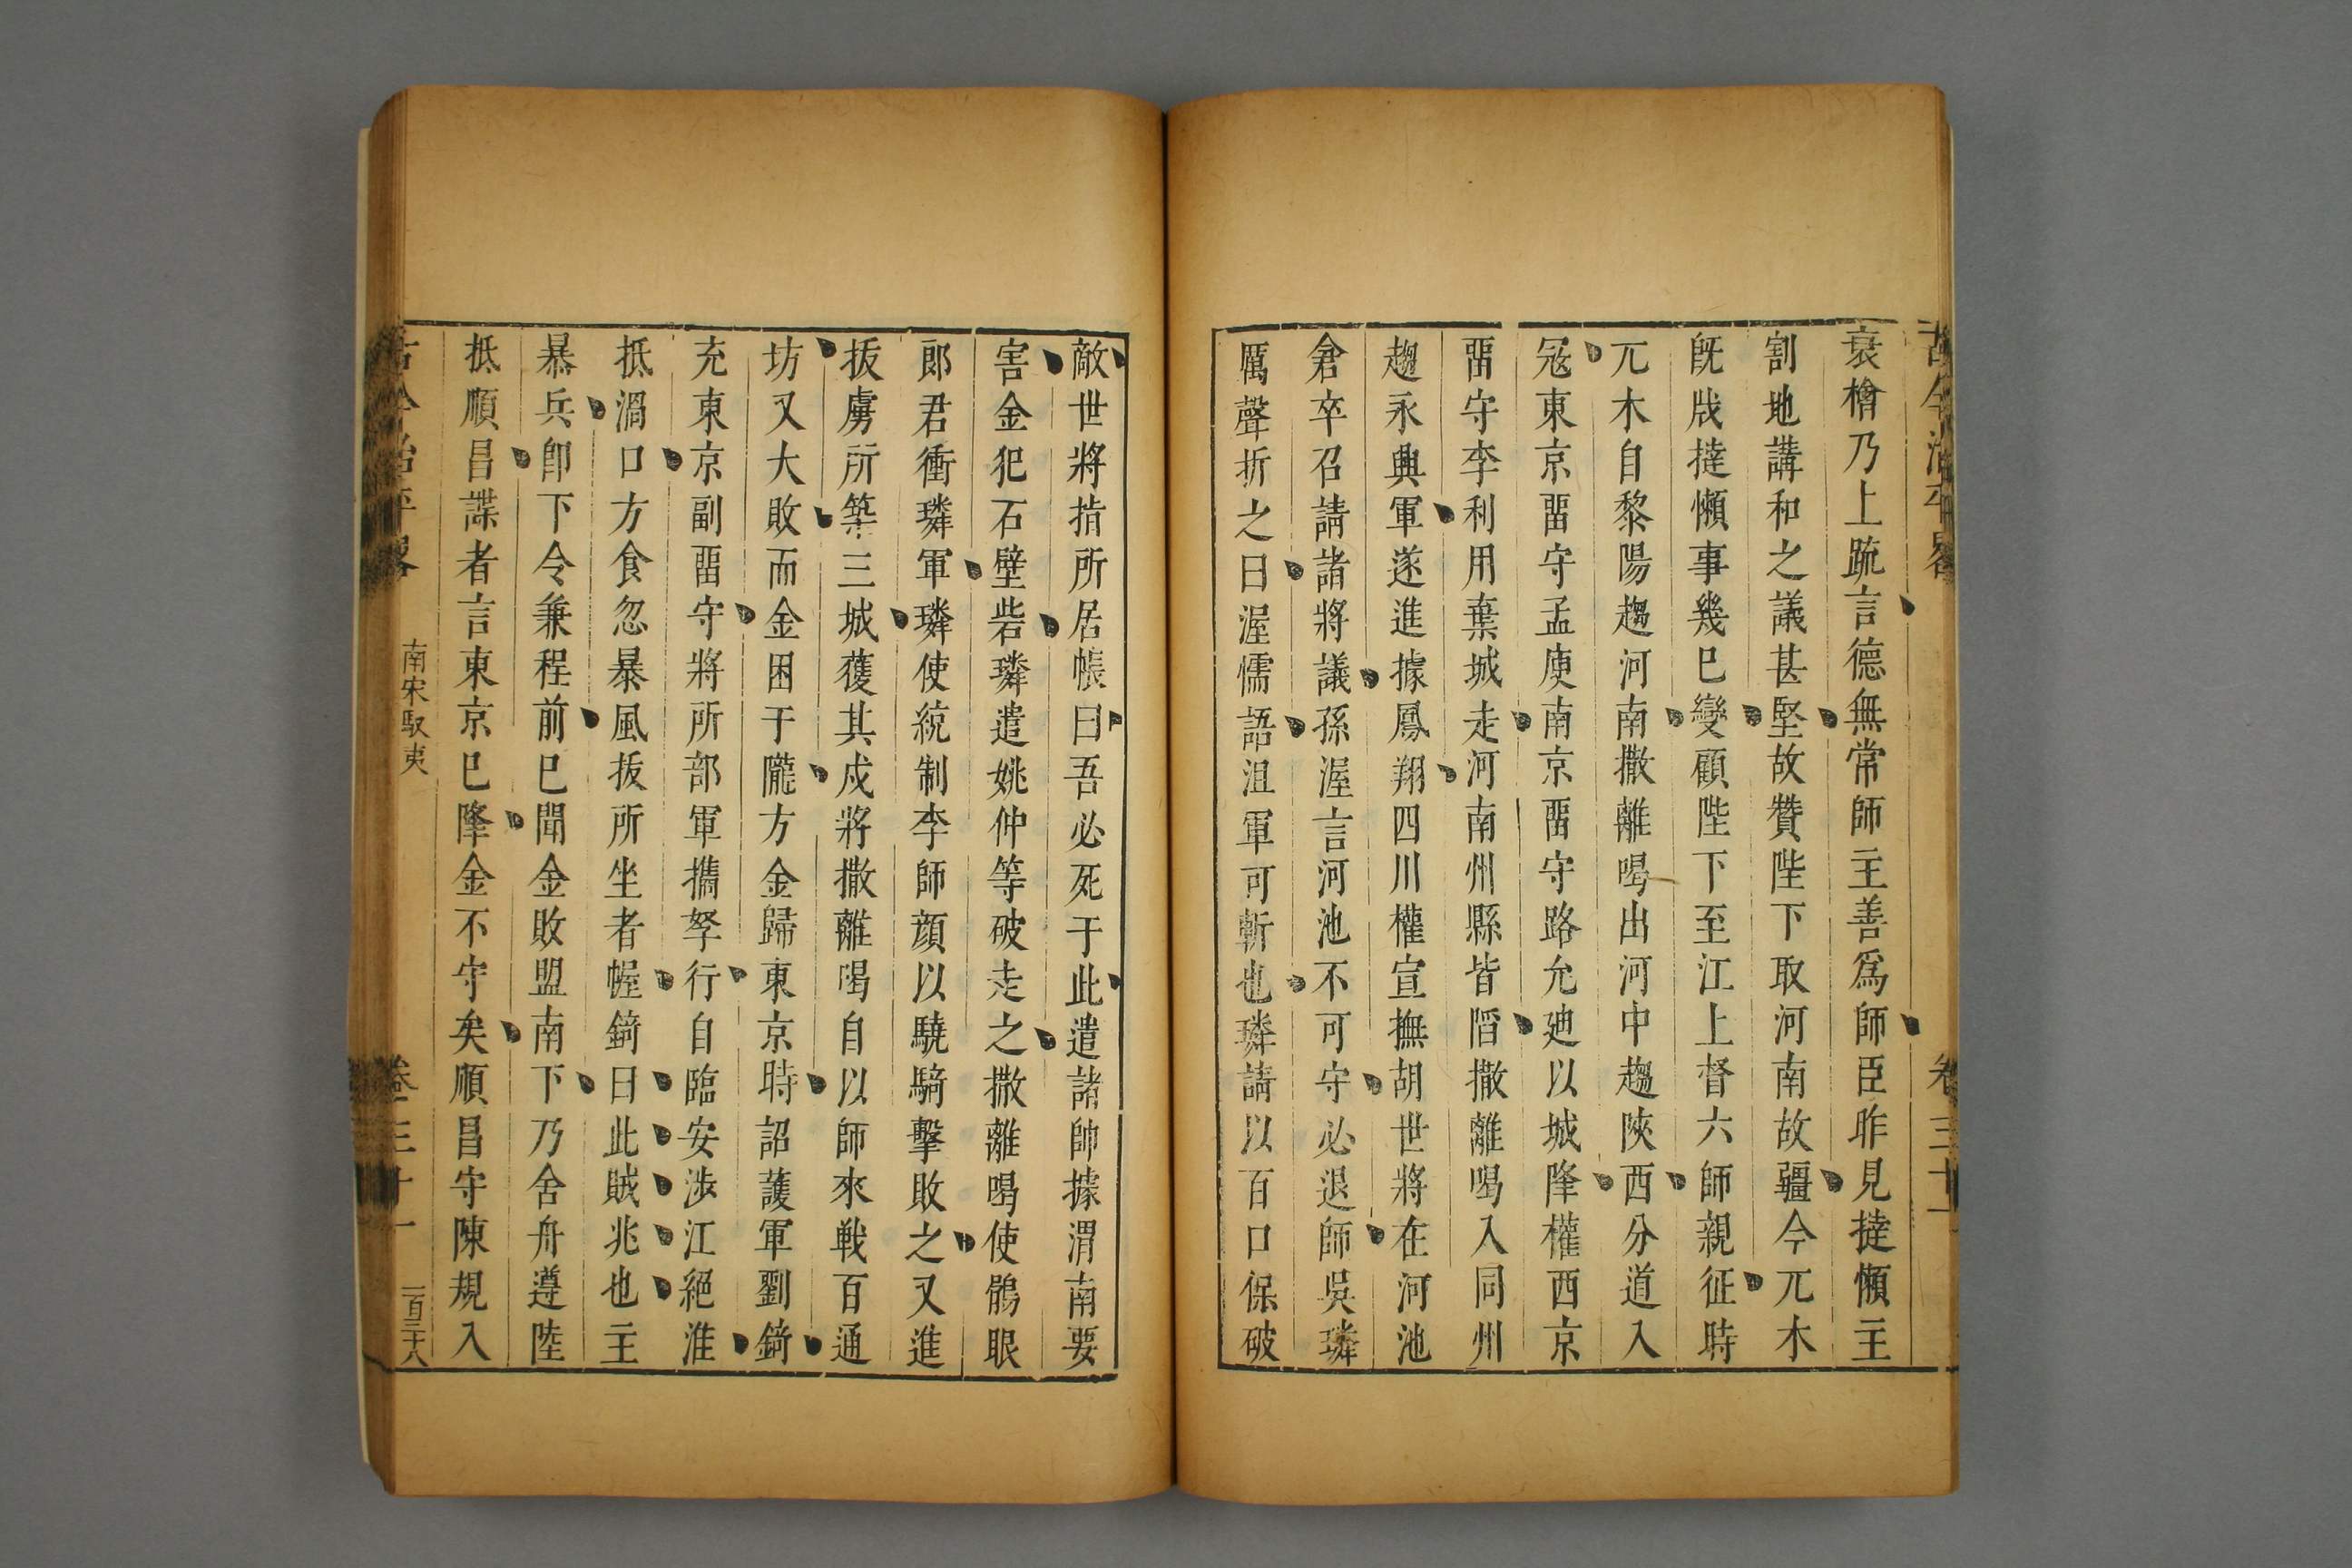 古今治平畧
卷三十一
衰檜乃上䟽言德無常師主善爲師臣昨見撻懶主
割地講和之議甚堅故贊陛下取河南故疆今兀朮
旣戕撻懶事幾已變顧陛下至江上督六師親征時
兀朮自黎陽趨河南撒離喝出河中趨陝西分道入
冦東京畱守孟庾南京畱守路允廸以城降權西京
畱守李利用棄城走河南州縣皆陷撒離喝入同州
趨永興軍遂進據鳳翔四川權宣撫胡世將在河池
倉卒召請諸將議孫渥言河池不可守必退師吳璘
厲聲折之曰渥懦語沮軍可斬也璘請以百口保破
敵世將指所居帳曰吾必死于此遣諸帥據渭南要
害金犯石壁砦璘遣姚仲等破走之撒離喝使鶻眼
郎君衝璘軍璘使統制李師顔以驍騎擊敗之又進
拔虜所築三城獲其戍將撒離喝自以師來戰百通
坊又大敗而金困于隴方金歸東京時詔護軍劉錡
充東京副畱守將所部軍攜孥行自臨安涉江絕淮
抵渦口方食忽暴風拔所坐者幄錡曰此賊兆也主
暴兵卽下令兼程前已聞金敗盟南下乃舍舟遵陸
抵順昌諜者言東京已降金不守矣順昌守陳規入
古今治平畧
南宋馭夷
卷三十一
一百三十八